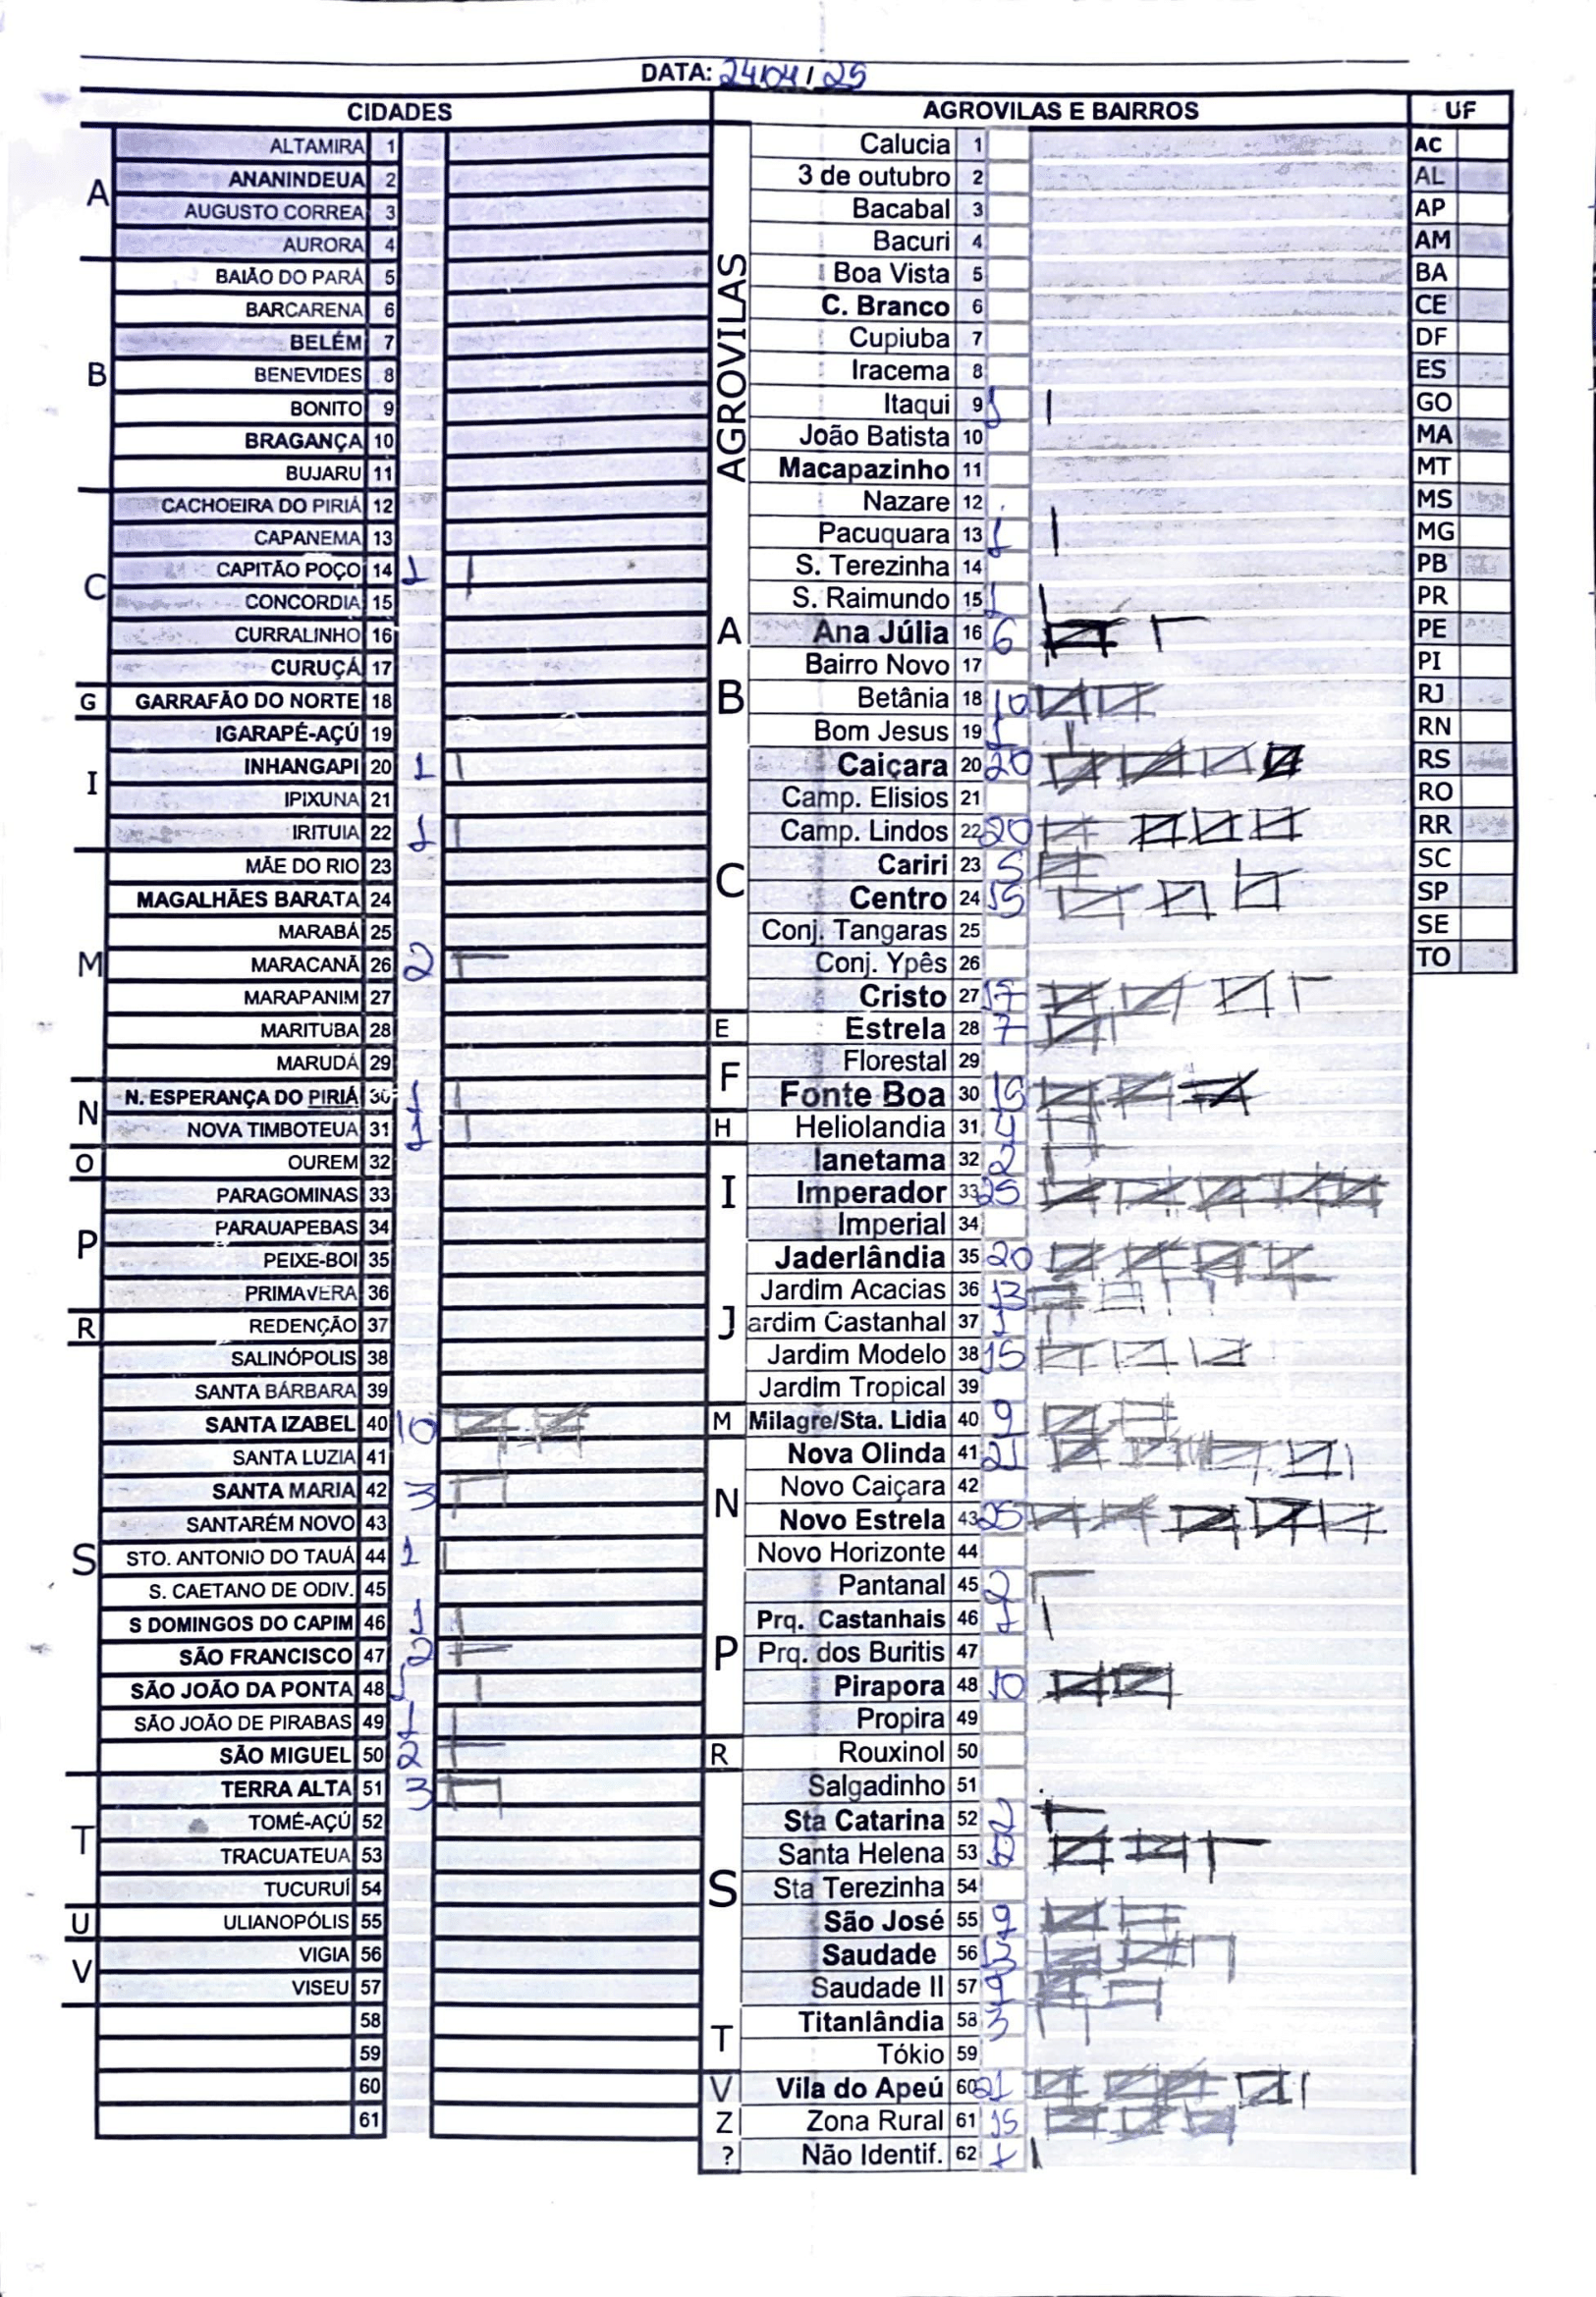 DATA: 24/04/25
CIDADES
A
ALTAMIRA 1
ANANINDEUA 2
AUGUSTO CORREA 3
AURORA 4
B
BAIÃO DO PARÁ 5
BARCARENA 6
BELÉM 7
BENEVIDES 8
BONITO 9
BRAGANÇA 10
BUJARU 11
C
CACHOEIRA DO PIRIÁ 12
CAPANEMA 13
CAPITÃO POÇO 14 1
CONCORDIA 15
CURRALINHO 16
CURUÇÁ 17
G
GARRAFÃO DO NORTE 18
I
IGARAPÉ-AÇÚ 19
INHANGAPI 20 1
IPIXUNA 21
IRITUIA 22 1
M
MÃE DO RIO 23
MAGALHÃES BARATA 24
MARABÁ 25
MARACANÃ 26 2
MARAPANIM 27
MARITUBA 28
MARUDÁ 29
N
N. ESPERANÇA DO PIRIÁ 30 1
NOVA TIMBOTEUA 31 1
O
OUREM 32
P
PARAGOMINAS 33
PARAUAPEBAS 34
PEIXE-BOI 35
PRIMAVERA 36
R
REDENÇÃO 37
S
SALINÓPOLIS 38
SANTA BÁRBARA 39
SANTA IZABEL 40 10
SANTA LUZIA 41
SANTA MARIA 42 3
SANTARÉM NOVO 43
STO. ANTONIO DO TAUÁ 44 1
S. CAETANO DE ODIV. 45
S DOMINGOS DO CAPIM 46 1
SÃO FRANCISCO 47 2
SÃO JOÃO DA PONTA 48 1
SÃO JOÃO DE PIRABAS 49 1
SÃO MIGUEL 50 2
T
TERRA ALTA 51 3
TOMÉ-AÇÚ 52
TRACUATEUA 53
TUCURUÍ 54
U
ULIANOPÓLIS 55
V
VIGIA 56
VISEU 57
58
59
60
61
AGROVILAS E BAIRROS
AGROVILAS
Calucia 1
3 de outubro 2
Bacabal 3
Bacuri 4
Boa Vista 5
C. Branco 6
Cupiuba 7
Iracema 8
Itaqui 9 1
João Batista 10
Macapazinho 11
Nazare 12
Pacuquara 13 1
S. Terezinha 14
S. Raimundo 15 1
A
Ana Júlia 16 6
B
Bairro Novo 17
Betânia 18 10
Bom Jesus 19 1
C
Caiçara 20 20
Camp. Elisios 21
Camp. Lindos 22 20
Cariri 23 5
Centro 24 15
Conj. Tangaras 25
Conj. Ypês 26
Cristo 27 17
E
Estrela 28 7
F
Florestal 29
Fonte Boa 30
H
Heliolandia 31 4
I
Ianetama 32 2
Imperador 33 25
Imperial 34
J
Jaderlândia 35 20
Jardim Acacias 36 13
ardim Castanhal 37 1
Jardim Modelo 38 15
Jardim Tropical 39
M
Milagre/Sta. Lidia 40 9
N
Nova Olinda 41 21
Novo Caiçara 42
Novo Estrela 43 25
Novo Horizonte 44
P
Pantanal 45 2
Prq. Castanhais 46 1
Prq. dos Buritis 47
Pirapora 48 10
Propira 49
R
Rouxinol 50
S
Salgadinho 51
Sta Catarina 52 2
Santa Helena 53 12
Sta Terezinha 54
São José 55 9
Saudade 56 13
Saudade II 57 9
T
Titanlândia 58 3
Tókio 59
V
Vila do Apeú 60 21
Z
Zona Rural 61 15
?
Não Identif. 62 1
UF
AC
AL
AP
AM
BA
CE
DF
ES
GO
MA
MT
MS
MG
PB
PR
PE
PI
RJ
RN
RS
RO
RR
SC
SP
SE
TO